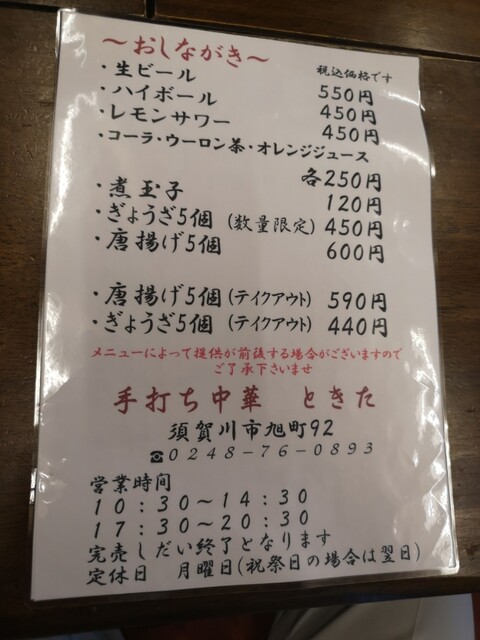 ～おしながき～
税込価格です
・生ビール 550円
・ハイボール 450円
・レモンサワー 450円
・コーラ・ウーロン茶・オレンジジュース
各250円
・煮玉子 120円
・ぎょうざ5個 (数量限定) 450円
・唐揚げ5個 600円
・唐揚げ5個 (テイクアウト) 590円
・ぎょうざ5個 (テイクアウト) 440円
メニューによって提供が前後する場合がございますので
ご了承下さいませ
手打ち中華 ときた
須賀川市旭町92
☎0248-76-0893
営業時間
10:30～14:30
17:30～20:30
完売しだい終了となります
定休日 月曜日(祝祭日の場合は翌日)